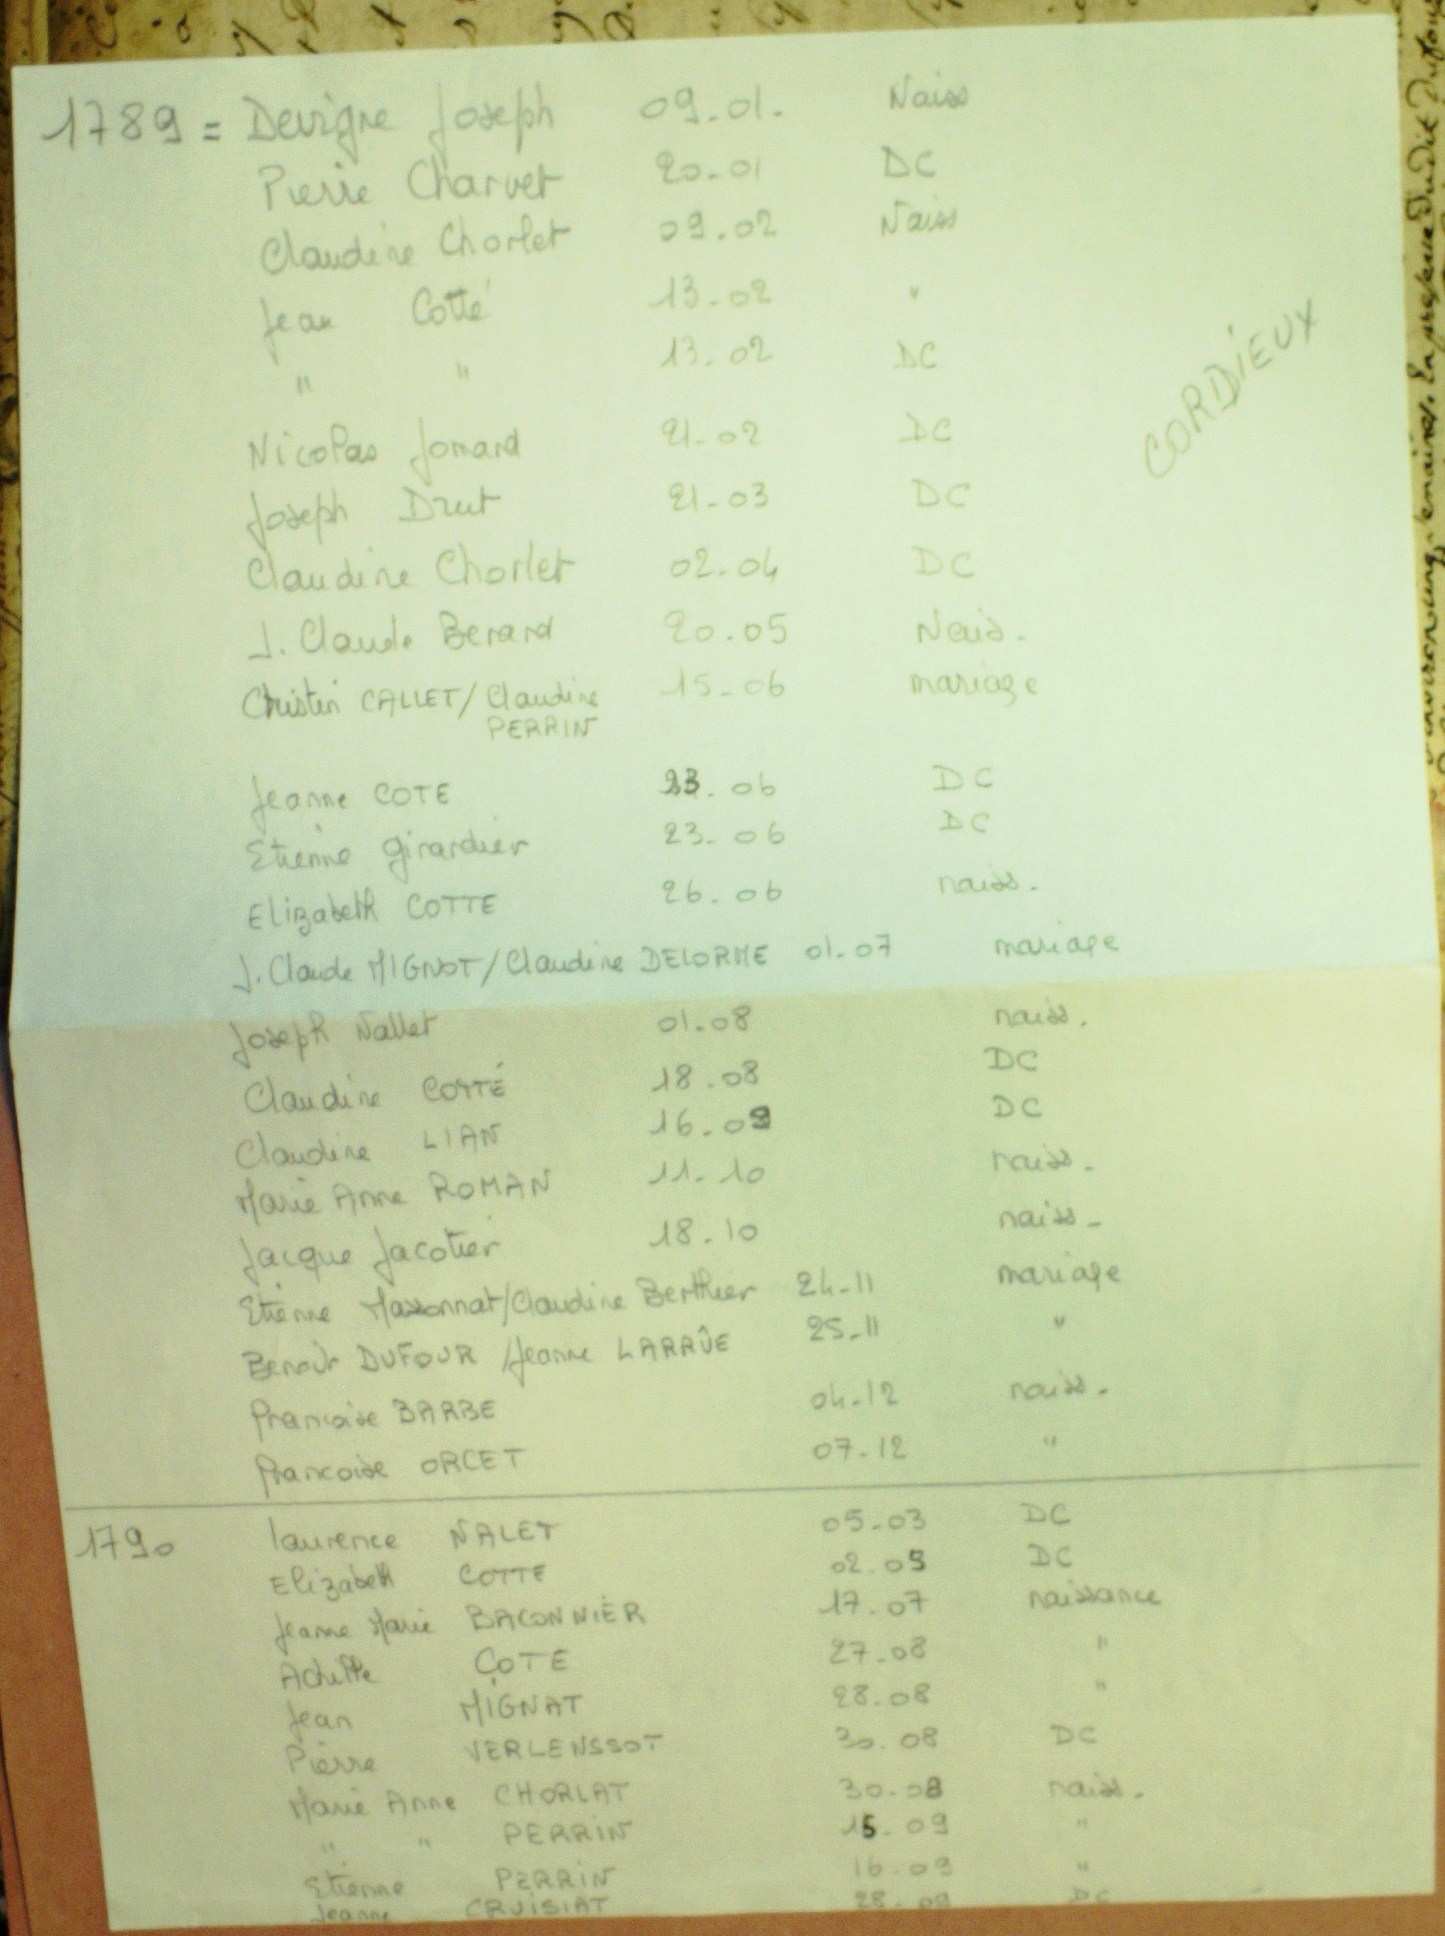 1789 = Devigne Joseph 09.01. Naiss
Pierre Charvet 20-01 DC
Claudine Chorlet 09.02 Naiss
Jean Cotté 13-02 "
" " 13.02 DC
Nicolas Jomard 21-02 DC
Joseph Drut 21-03 DC
Claudine Chorlet 02.04 DC
J. Claude Berard 20.05 Nais.
Christin CALLET/Claudine 15-06 mariage
PERRIN
Jeanne COTE 23.06 DC
Etienne Girardier 23-06 DC
Elizabeth COTTE 26.06 naiss.
J. Claude MIGNOT/Claudine DELORME 01.07 mariage
Joseph Nallet 01.08 naiss.
Claudine COTTÉ 18.08 DC
Claudine LIAN 16.09 DC
Marie Anne ROMAN 11-10 naiss.
Jacque Jacotier 18.10 naiss-
Etienne Massonnat/Claudine Berthier 24-11 mariage
Benoit DUFOUR /Jeanne LARRÛE 25-11 "
Francoise BARBE 04-12 naiss.
Francoise ORCET 07.12 "
1790 laurence NALET 05-03 DC
Elizabeth COTTE 02.05 DC
Jeanne Marie BACONNIER 17.07 naissance
Achille COTE 27-08 "
Jean MIGNAT 28.08 "
Pierre VERLENSSOT 30.08 DC
Marie Anne CHORLAT 30-08 naiss.
" " PERRIN 15.09 "
Etienne PERRIN 16-09 "
Jeanne CRUISIAT 28-09 DC
CORDIEUX